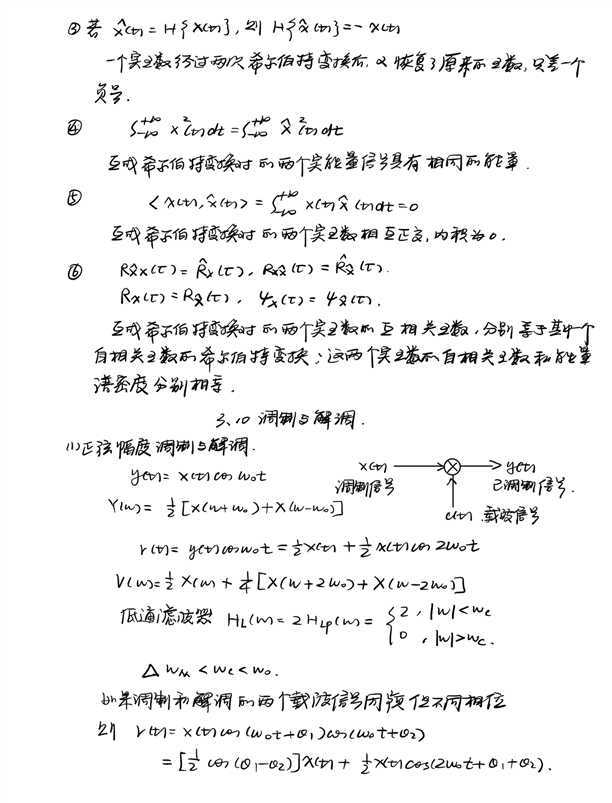 ③ 若 x̂(t) = H{x(t)}, 则 H{x̂(t)} = -x(t)
一个实函数经过两次希尔伯特变换后, 又恢复了原来的函数, 只差一个
负号.
④ ∫_{-∞}^{+∞} x²(t)dt = ∫_{-∞}^{+∞} x̂²(t)dt
互成希尔伯特变换对的两个实能量信号具有相同的能量.
⑤ <x(t), x̂(t)> = ∫_{-∞}^{+∞} x(t)x̂(t)dt = 0
互成希尔伯特变换对的两个实函数相互正交, 内积为0.
⑥ R_{x̂x}(τ) = R̂_x(τ), R_{xx̂}(τ) = R̂_{x̂}(τ).
R_x(τ) = R_{x̂}(τ), Ψ_x(τ) = Ψ_{x̂}(τ).
互成希尔伯特变换对的两个实函数的互相关函数, 分别等于其中一个
自相关函数的希尔伯特变换; 这两个实函数的自相关函数和能量
谱密度分别相等.
3.10 调制与解调.
(1) 正弦幅度调制与解调.
y(t) = x(t)cosω₀t
x(t) → ⊗ → y(t)
调制信号 已调制信号.
Y(ω) = ½[X(ω+ω₀)+X(ω-ω₀)]
c(t) 载波信号
r(t) = y(t)cosω₀t = ½x(t) + ½x(t)cos2ω₀t
V(ω) = ½X(ω) + ¼[X(ω+2ω₀)+X(ω-2ω₀)]
低通滤波器 H_L(ω) = 2H_{LP}(ω) = { 2, |ω|<ω_c
0, |ω|>ω_c.
△ ω_M < ω_c < ω₀.
如果调制和解调的两个载波信号同频但不同相位
则 r(t) = x(t)cos(ω₀t+θ₁)cos(ω₀t+θ₂)
= [½cos(θ₁-θ₂)]x(t) + ½x(t)cos(2ω₀t+θ₁+θ₂).